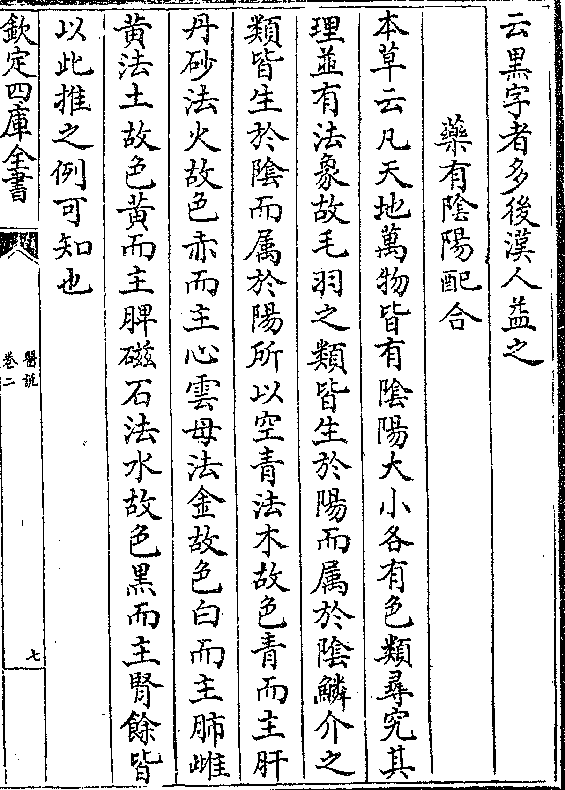 云黒字者多後漢人益之
藥有陰陽配合
本草云凡天地萬物皆有陰陽大小各有色類尋究其
理並有法象故毛羽之類皆生於陽而属於陰鱗介之
類皆生於陰而属於陽所以空青法木故色青而主肝
丹砂法火故色赤而主心雲母法金故色白而主肺雌
黄法土故色黄而主脾磁石法水故色黒而主腎餘皆
以此推之例可知也
欽定四庫全書
醫説
卷二
七